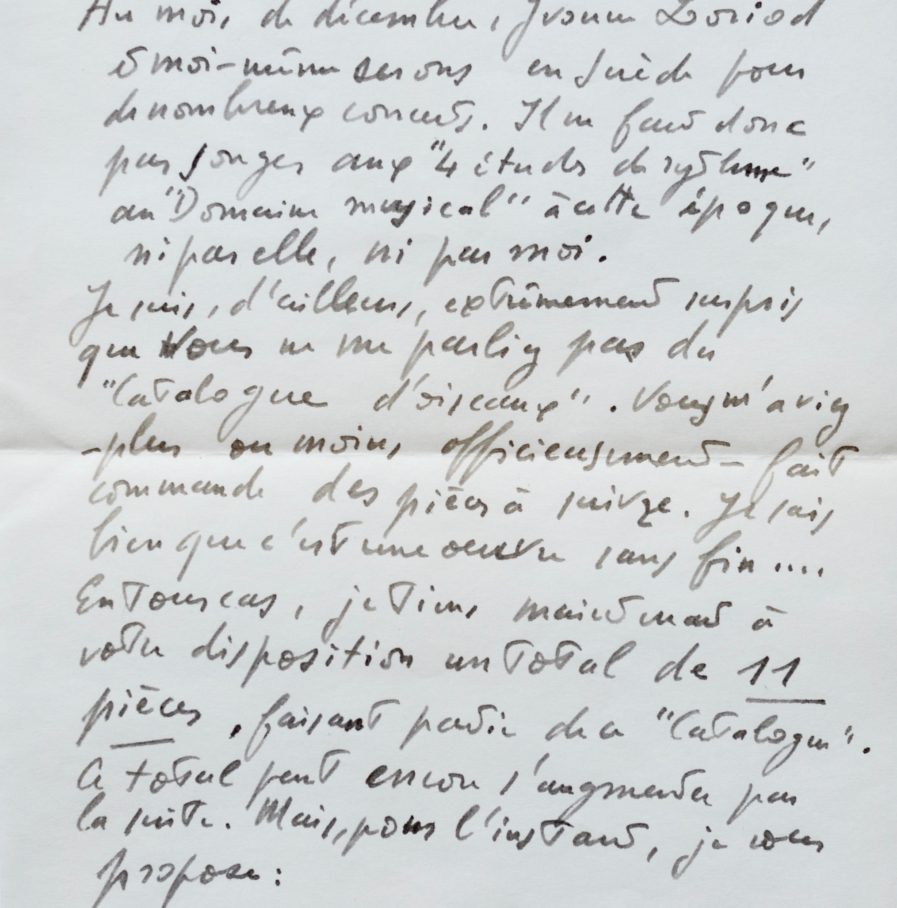 Au mois de décembre, Yvonne Loriod
& moi-même serons en Suède pour
de nombreux concerts. Il ne faut donc
pas songer aux "4 études de rythme"
au "Domaine musical" à cette époque,
ni par elle, ni par moi.
Je suis, d'ailleurs, extrêmement surpris
que vous ne me parliez pas du
"Catalogue d'oiseaux". Vous m'aviez
-plus ou moins officieusement- fait
commande des pièces à suivre. Je sais
bien que c'est une oeuvre sans fin....
En tous cas, je tiens maintenant à
votre disposition un total de 11
pièces, faisant partie de ce "Catalogue".
Ce total peut encore s'augmenter par
la suite. Mais, pour l'instant, je vous
propose: